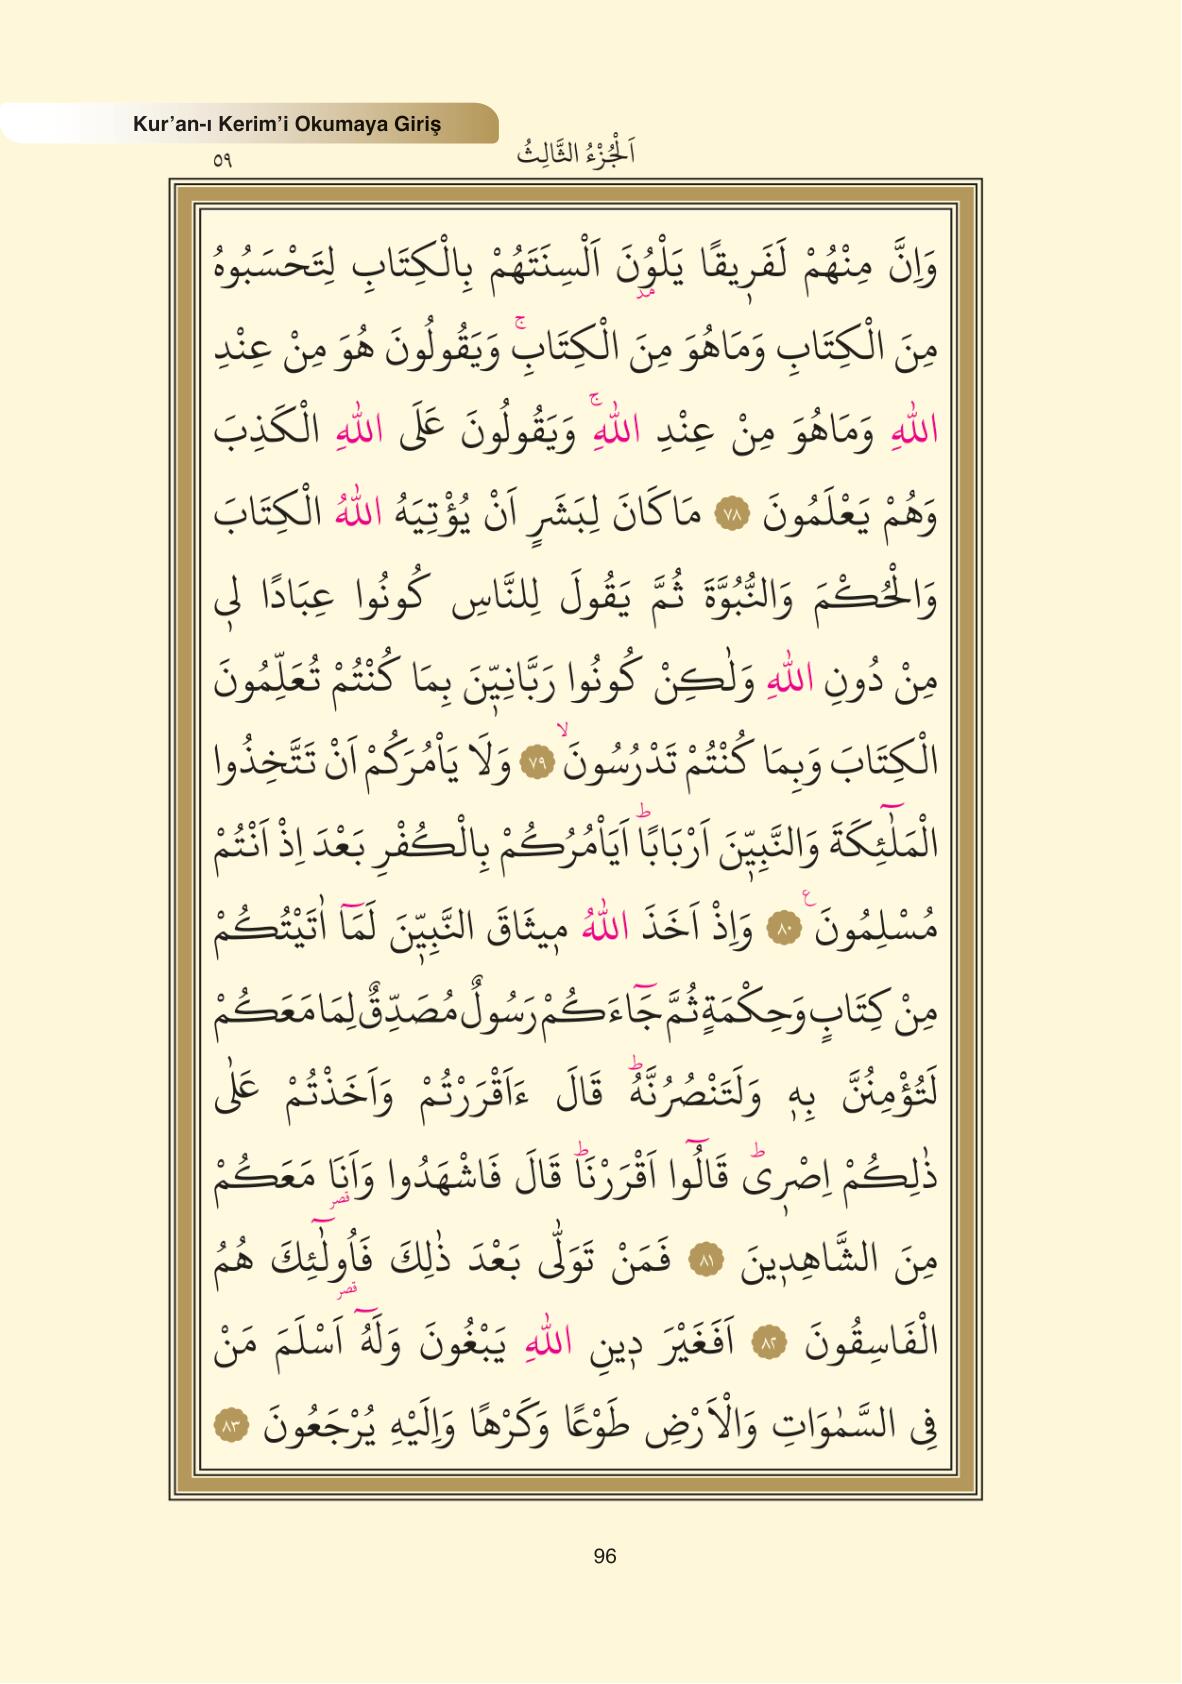 Kur’an-ı Kerim’i Okumaya Giriş
٥٩
اَلْجُزْءُ الثَّالِثُ
وَاِنَّ مِنْهُمْ لَفَرٖيقًا يَلْوُ۫نَ اَلْسِنَتَهُمْ بِالْكِتَابِ لِتَحْسَبُوهُ
مِنَ الْكِتَابِ وَمَاهُوَ مِنَ الْكِتَابِۚ وَيَقُولُونَ هُوَ مِنْ عِنْدِ
اللّٰهِ وَمَاهُوَ مِنْ عِنْدِ اللّٰهِۚ وَيَقُولُونَ عَلَى اللّٰهِ الْكَذِبَ
وَهُمْ يَعْلَمُونَ ٧٨ مَاكَانَ لِبَشَرٍ اَنْ يُؤْتِيَهُ اللّٰهُ الْكِتَابَ
وَالْحُكْمَ وَالنُّبُوَّةَ ثُمَّ يَقُولَ لِلنَّاسِ كُونُوا عِبَادًا لٖى
مِنْ دُونِ اللّٰهِ وَلٰكِنْ كُونُوا رَبَّانِيّٖنَ بِمَا كُنْتُمْ تُعَلِّمُونَ
الْكِتَابَ وَبِمَا كُنْتُمْ تَدْرُسُونَۙ ٧٩ وَلَا يَاْمُرَكُمْ اَنْ تَتَّخِذُوا
الْمَلٰٓئِكَةَ وَالنَّبِيّٖنَ اَرْبَابًاؕ اَيَاْمُرُكُمْ بِالْكُفْرِ بَعْدَ اِذْ اَنْتُمْ
مُسْلِمُونَ ع ٨٠ وَاِذْ اَخَذَ اللّٰهُ مٖيثَاقَ النَّبِيّٖنَ لَمَٓا اٰتَيْتُكُمْ
مِنْ كِتَابٍ وَحِكْمَةٍ ثُمَّ جَٓاءَكُمْ رَسُولٌ مُصَدِّقٌ لِمَا مَعَكُمْ
لَتُؤْمِنُنَّ بِهٖ وَلَتَنْصُرُنَّهُؕ قَالَ ءَاَقْرَرْتُمْ وَاَخَذْتُمْ عَلٰى
ذٰلِكُمْ اِصْرٖىؕ قَالُٓوا اَقْرَرْنَاؕ قَالَ فَاشْهَدُوا وَاَنَا۬ مَعَكُمْ
مِنَ الشَّاهِدٖينَ ٨١ فَمَنْ تَوَلّٰى بَعْدَ ذٰلِكَ فَاُو۬لٰٓئِكَ هُمُ
الْفَاسِقُونَ ٨٢ اَفَغَيْرَ دٖينِ اللّٰهِ يَبْغُونَ وَلَهُٓ اَسْلَمَ مَنْ
فِى السَّمٰوَاتِ وَالْاَرْضِ طَوْعًا وَكَرْهًا وَاِلَيْهِ يُرْجَعُونَ ٨٣
96